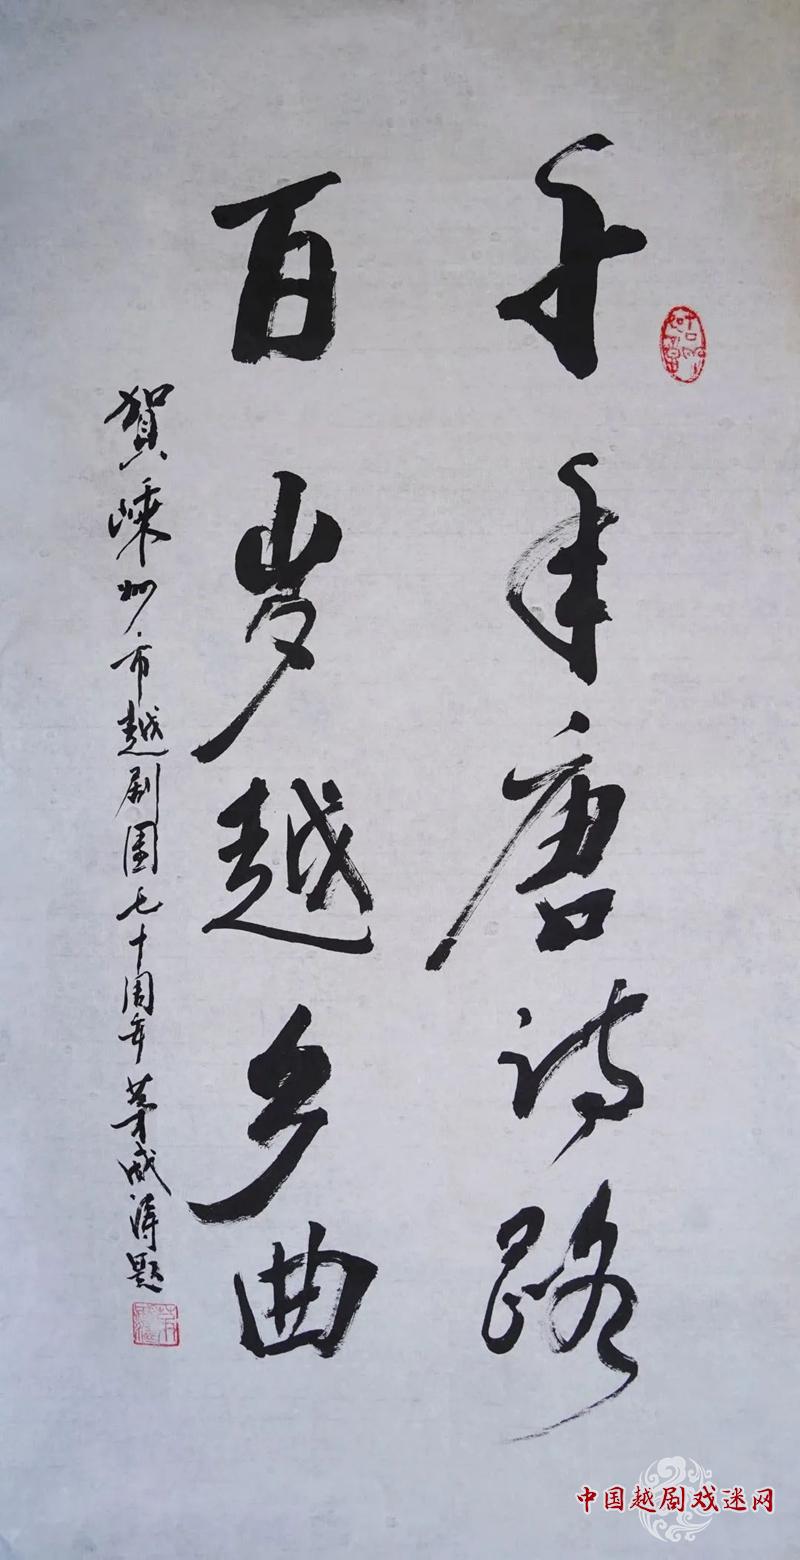 千年唐诗路
百岁越乡曲
賀嵊州市越剧團七十周年 茅威涛題
中国越剧戏迷网